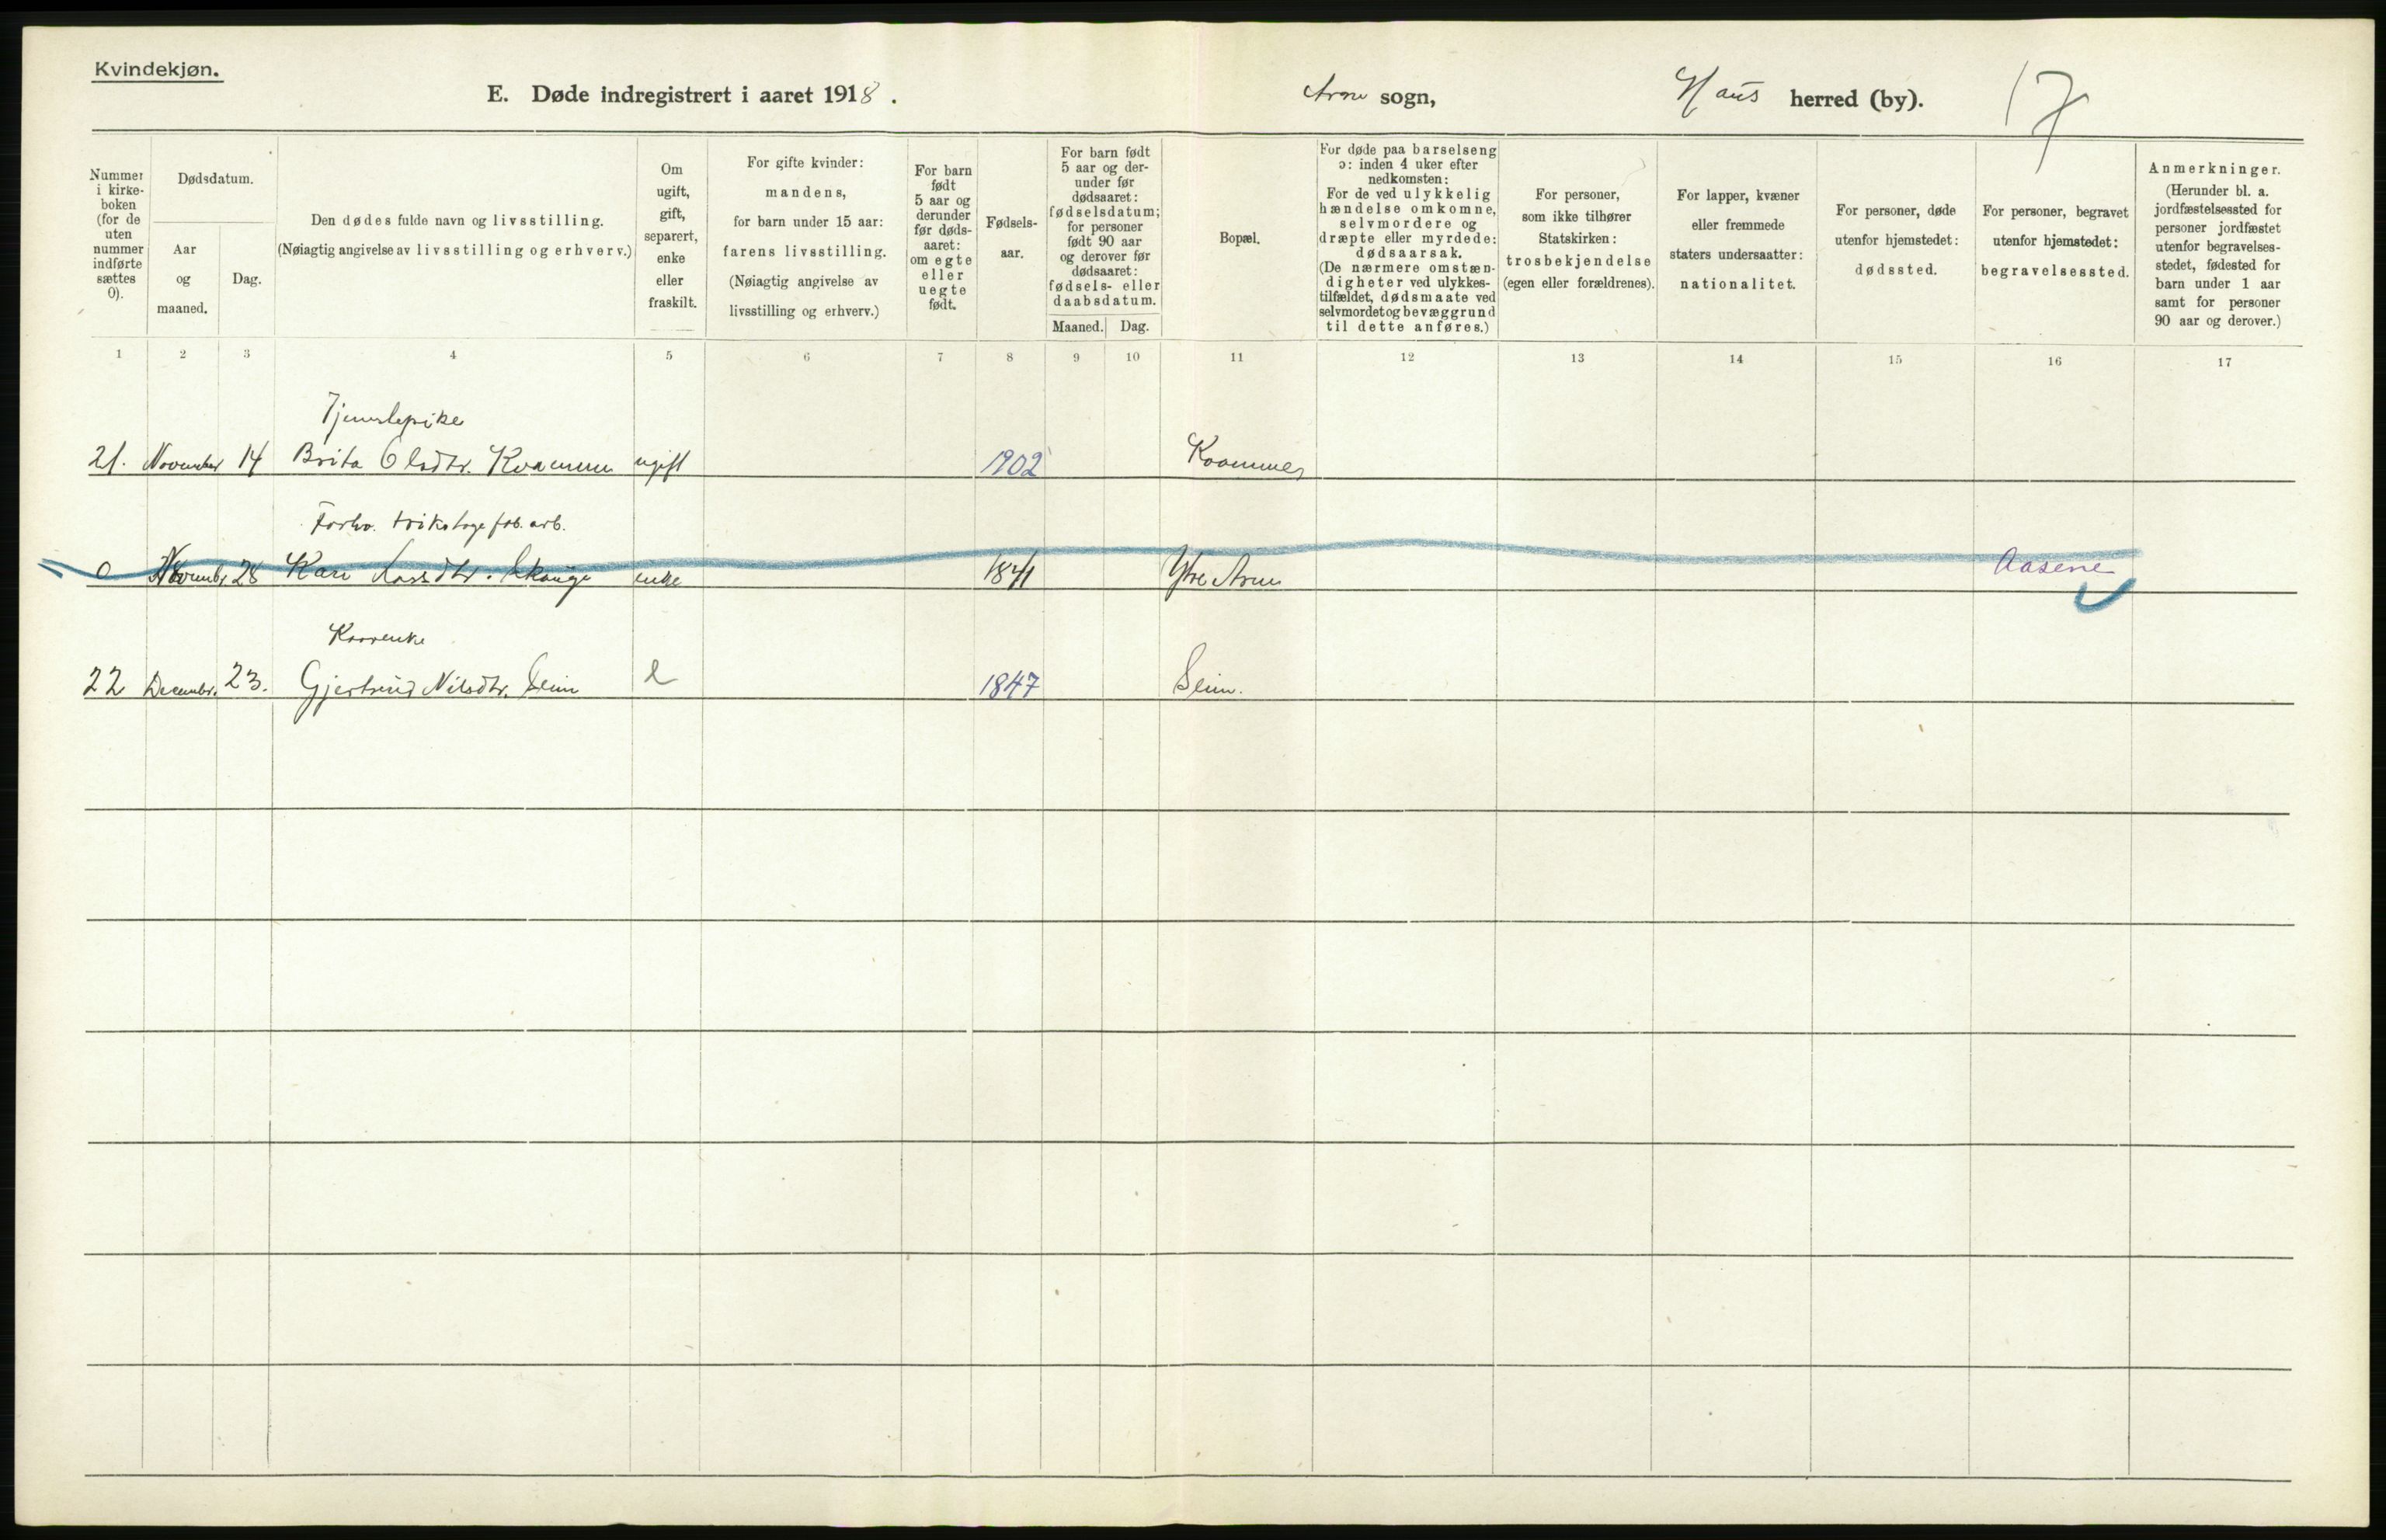 Kvindekjøn.
E. Døde indregistrert i aaret 1918. Arne sogn, Haus herred (by). 17
Nummer i kirkeboken (for de uten nummer indførte sættes 0).
Dødsdatum.
Aar og maaned.
Dag.
Den dødes fulde navn og livsstilling.
(Nøiagtig angivelse av livsstilling og erhverv.)
Om ugift, gift, separert, enke eller fraskilt.
For gifte kvinder:
mandens,
for barn under 15 aar:
farens livsstilling.
(Nøiagtig angivelse av
livsstilling og erhverv.)
For barn født 5 aar og derunder før dødsaaret: om egte eller uegte født.
Fødselsaar.
For barn født 5 aar og derunder før dødsaaret: fødselsdatum; for personer født 90 aar og derover før dødsaaret: fødsels- eller daabsdatum.
Maaned. Dag.
Bopæl.
For døde paa barselseng
ɔ: inden 4 uker efter
nedkomsten:
For de ved ulykkelig
hændelse omkomne,
selvmordere og
dræpte eller myrdede:
dødsaarsak.
(De nærmere omstæn-
digheter ved ulykkes-
tilfældet, dødsmaate ved
selvmordet og bevæggrund
til dette anføres.)
For personer,
som ikke tilhører
Statskirken:
trosbekjendelse
(egen eller forældrenes).
For lapper, kvæner
eller fremmede
staters undersaatter:
nationalitet.
For personer, døde
utenfor hjemstedet:
dødssted.
For personer, begravet
utenfor hjemstedet:
begravelsessted.
Anmerkninger.
(Herunder bl. a.
jordfæstelsessted for
personer jordfæstet
utenfor begravelses-
stedet, fødested for
barn under 1 aar
samt for personer
90 aar og derover.)
1 2 3 4 5 6 7 8 9 10 11 12 13 14 15 16 17
Tjenstepike
21. November 14 Brita Olsdtr. Kvammen ugift 1902 Kvammen
Forhv. trikotagefab. arb.
0 Novembr 28 Kari Larsdtr. Skauge enke 1841 Ytre Arne Aasene
Kaarenke
22 Decembr. 23. Gjertrud Nilsdtr. Seim e 1847 Seim.